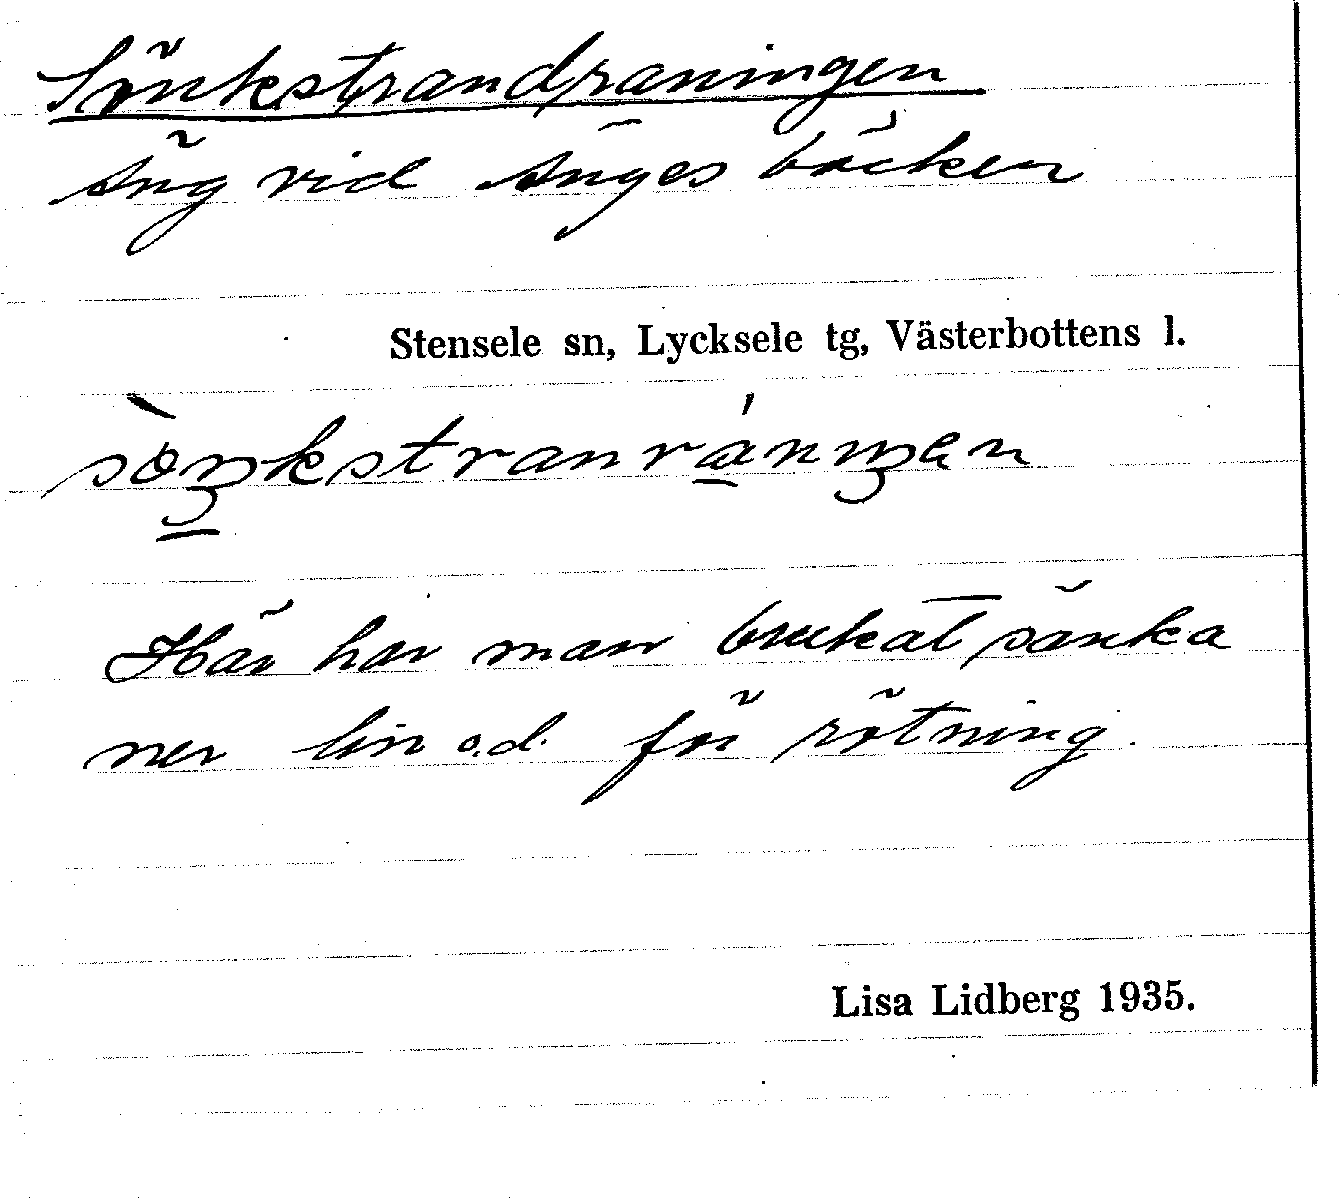 Sönkstrandraningen
Äng vid Ängesbäcken
Stensele sn, Lycksele tg, Västerbottens l.
sòŋkstranránıŋen
Här har man brukat sänka
ner lin o.d. för rötning.
Lisa Lidberg 1935.